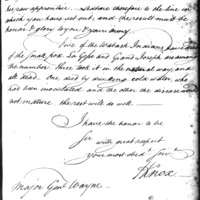 his raw apprentice. Adhere therefore to the line in
which you have set out, and the result must be
honor & glory to you & your army.
Five of the Wabash Indians have died
of the small pox. La Gese and Grand Joseph are among
the number. Three took it in the natural way and
all died. One died by drinking cold water, who
had been inoculated and the other the disease did
not mature. the rest will do well.
I have the honor to be
Sir with great respect
your most obed. Serv.
HKnox
Major Genl Wayne.